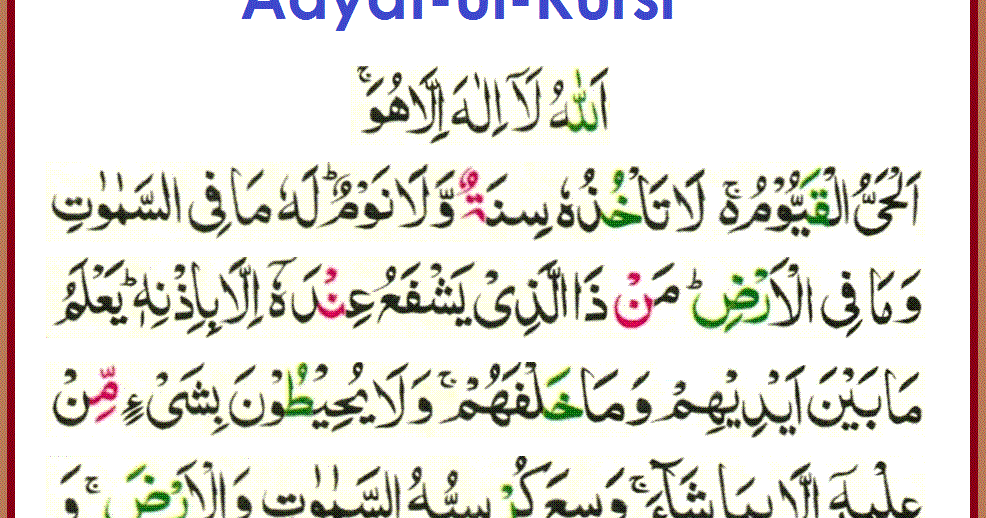 Aayat-ul-Kursi
اَللّٰهُ لَاۤ اِلٰهَ اِلَّا هُوَ ۚ
اَلْحَیُّ الْقَیُّوْمُ ۚ۬ لَا تَاْخُذُهٗ سِنَةٌ وَّ لَا نَوْمٌ ؕ لَهٗ مَا فِی السَّمٰوٰتِ
وَ مَا فِی الْاَرْضِ ؕ مَنْ ذَا الَّذِیْ یَشْفَعُ عِنْدَهٗۤ اِلَّا بِاِذْنِهٖ ؕ یَعْلَمُ
مَا بَیْنَ اَیْدِیْهِمْ وَ مَا خَلْفَهُمْ ۚ وَ لَا یُحِیْطُوْنَ بِشَیْءٍ مِّنْ
عِلْمِهٖۤ اِلَّا بِمَا شَآءَ ۚ وَسِعَ كُرْسِیُّهُ السَّمٰوٰتِ وَ الْاَرْضَ ۚ وَ